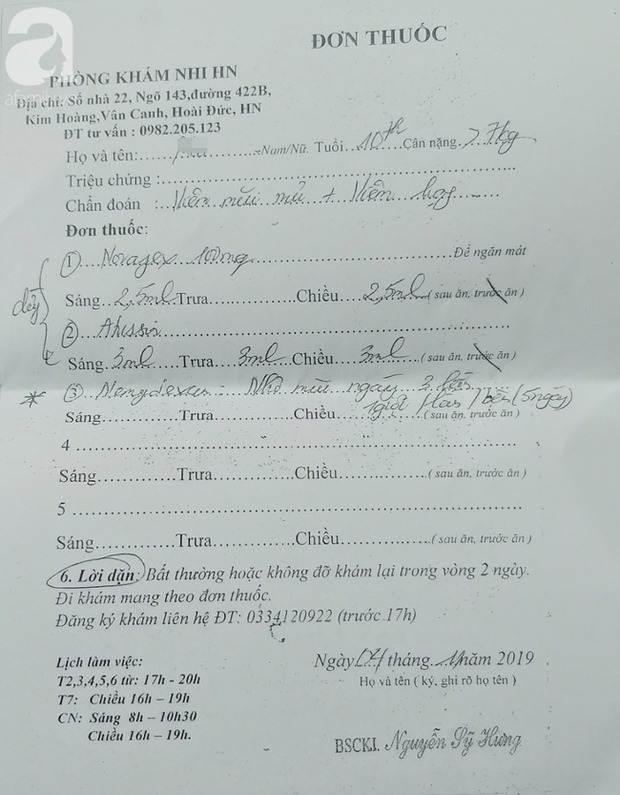 a
ĐƠN THUỐC
PHÒNG KHÁM NHI HN
Địa chỉ: Số nhà 22, Ngõ 143,đường 422B,
Kim Hoàng,Vân Canh, Hoài Đức, HN
ĐT tư vấn : 0982.205.123
Họ và tên:..... Nam/Nữ. Tuổi...10th..Cân nặng..7kg
Triệu chứng :
Chẩn đoán :..Viêm mũi mủ + Viêm họng
Đơn thuốc:
①....Novagex 100mg....Để ngăn mát
Sáng...2,5ml Trưa.....Chiều....2,5ml...( sau ăn, trước ăn )
②..Ahissin
Sáng..3ml...Trưa...3ml..Chiều...3ml...( sau ăn, trước ăn )
* ③ : Nhỏ mũi ngày 3 lần
1giọt /lần /bên (5ngày)
Sáng.....Trưa.....Chiều.....( sau ăn, trước ăn )
4
Sáng.....Trưa.....Chiều.....( sau ăn, trước ăn )
5
Sáng.....Trưa.....Chiều.....( sau ăn, trước ăn )
6. Lời dặn: Bất thường hoặc không đỡ khám lại trong vòng 2 ngày.
Đi khám mang theo đơn thuốc.
Đăng ký khám liên hệ ĐT: 0334120922 (trước 17h)
Lịch làm việc:
T2,3,4,5,6 từ: 17h - 20h
T7: Chiều 16h – 19h
CN: Sáng 8h – 10h30
Chiều 16h – 19h.
Ngày tháng..11năm 2019
Họ và tên ( ký, ghi rõ họ tên )
BSCKI. Nguyễn Sỹ Hưng